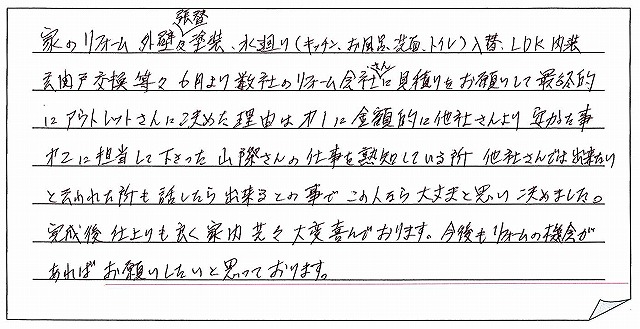 家のリフォーム 外壁張替&塗装、水廻り(キッチン、お風呂、洗面、トイレ)入替、LDK内装
玄関戸交換 等々 6月より数社のリフォーム会社さんに見積りをお願いして最終的
にアウトレットさんに決めた理由は オ1に金額的に他社さんより安かった事
オ2に担当して下さった山際さんの仕事を熟知している所 他社さんでは出来ない
と云われた所も話したら出来るとの事で この人なら大丈夫と思い決めました。
完成後 仕上りも良く家内共々大変喜んでおります。今後もリフォームの機会が
あればお願いしたいと思っております。